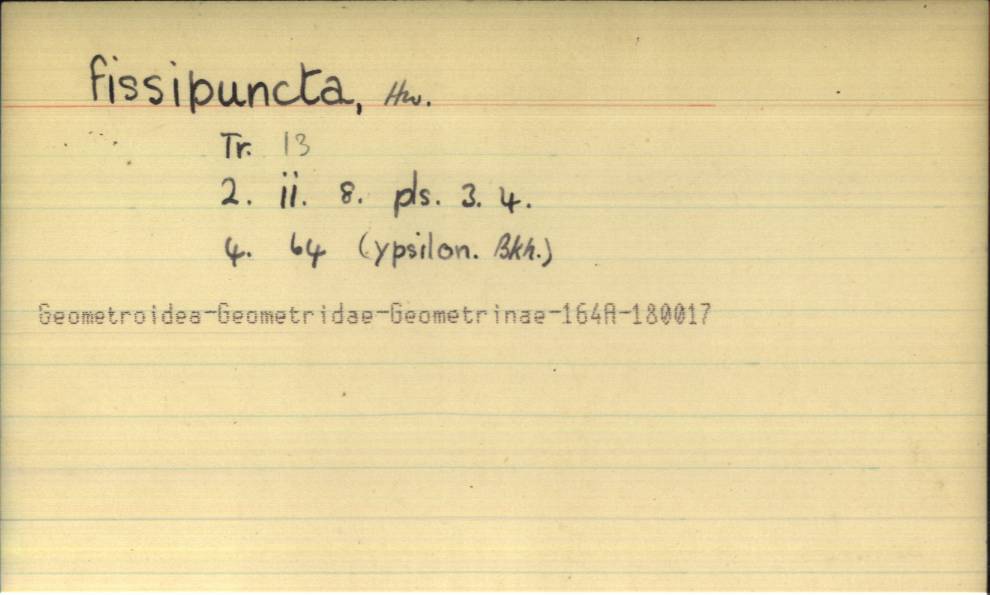 fissipuncta, Hw.
Tr. 13
2. ii. 8. pls. 3. 4.
4. 64 (ypsilon. Bkh.)
Geometroidea-Geometridae-Geometrinae-164A-180017